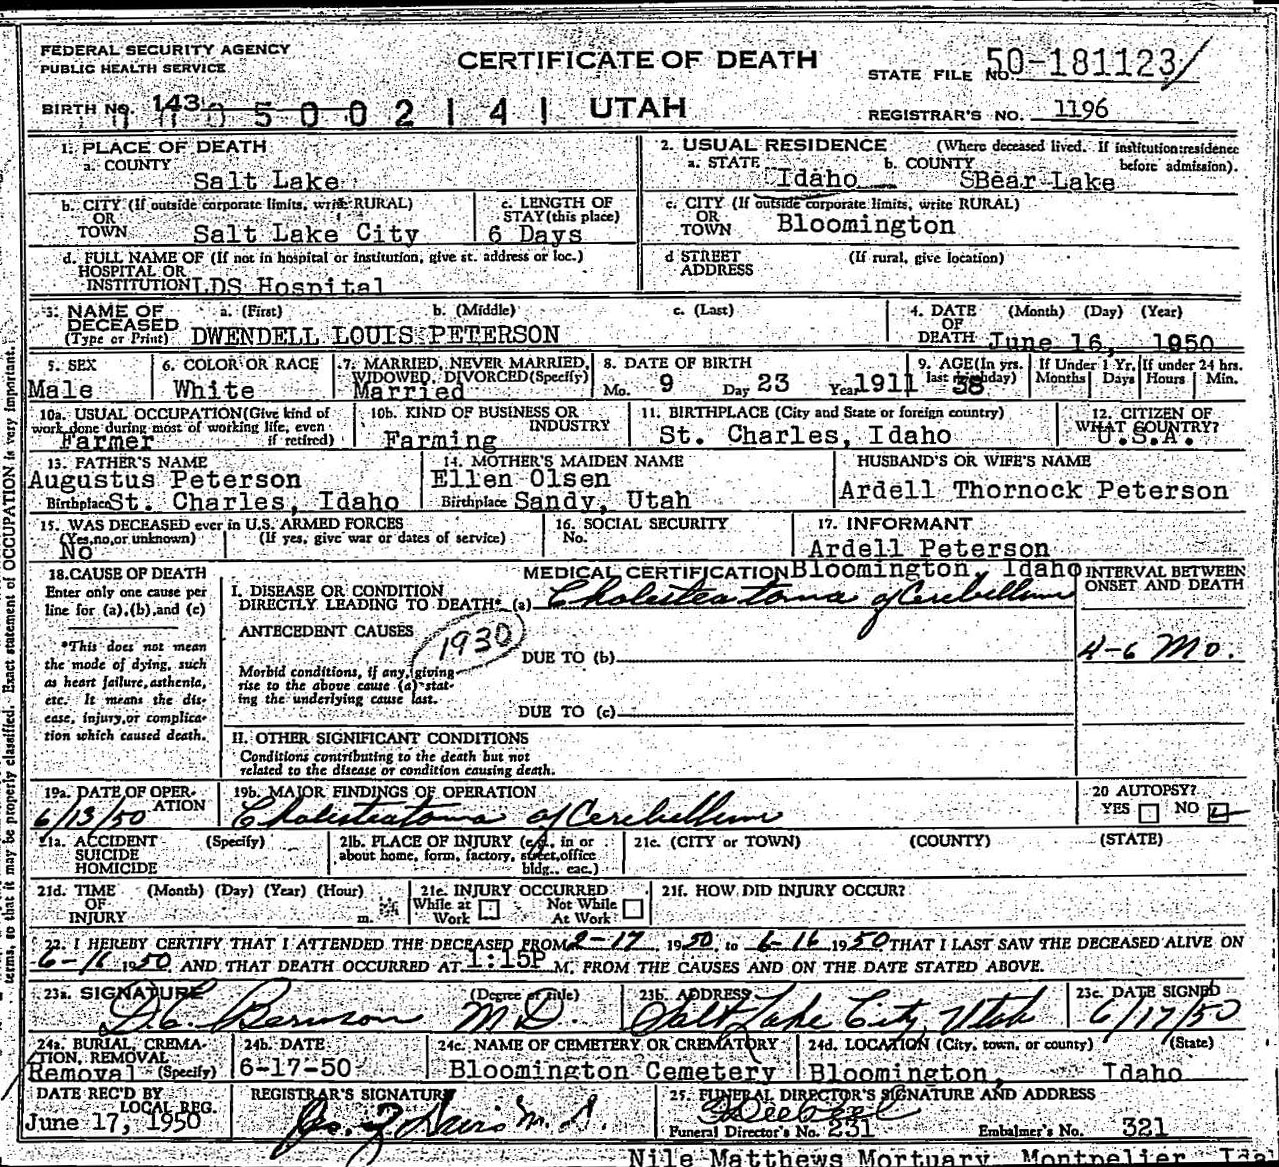 FEDERAL SECURITY AGENCY
PUBLIC HEALTH SERVICE
CERTIFICATE OF DEATH
STATE FILE NO. 50-181123
BIRTH NO. 143
UTAH
REGISTRAR'S NO. 1196
1. PLACE OF DEATH
a. COUNTY
Salt Lake
2. USUAL RESIDENCE (Where deceased lived. If institution:residence before admission).
a. STATE Idaho b. COUNTY SBear Lake
b. CITY (If outside corporate limits, write RURAL)
OR
TOWN Salt Lake City
c. LENGTH OF
STAY (this place)
6 Days
c. CITY (If outside corporate limits, write RURAL)
OR
TOWN Bloomington
d. FULL NAME OF (If not in hospital or institution, give st. address or loc.)
HOSPITAL OR
INSTITUTION LDS Hospital
d STREET (If rural, give location)
ADDRESS
3. NAME OF DECEASED (Type or Print)
a. (First) b. (Middle) c. (Last)
DWENDELL LOUIS PETERSON
4. DATE OF DEATH (Month) (Day) (Year)
June 16, 1950
5. SEX
Male
6. COLOR OR RACE
White
7. MARRIED, NEVER MARRIED,
WIDOWED, DIVORCED (Specify)
Married
8. DATE OF BIRTH
Mo. 9 Day 23 Year 1911
9. AGE (In yrs. last birthday)
38
If Under 1 Yr.
Months Days
If under 24 hrs.
Hours Min.
10a. USUAL OCCUPATION (Give kind of
work done during most of working life, even
if retired)
Farmer
10b. KIND OF BUSINESS OR
INDUSTRY
Farming
11. BIRTHPLACE (City and State or foreign country)
St. Charles, Idaho
12. CITIZEN OF
WHAT COUNTRY?
U.S.A.
13. FATHER'S NAME
Augustus Peterson
Birthplace St. Charles, Idaho
14. MOTHER'S MAIDEN NAME
Ellen Olsen
Birthplace Sandy, Utah
HUSBAND'S OR WIFE'S NAME
Ardell Thornock Peterson
15. WAS DECEASED ever in U.S. ARMED FORCES
(Yes,no,or unknown) (If yes, give war or dates of service)
No
16. SOCIAL SECURITY
No.
17. INFORMANT
Ardell Peterson
Bloomington, Idaho
18. CAUSE OF DEATH
Enter only one cause per
line for (a),(b),and (c)
*This does not mean
the mode of dying, such
as heart failure, asthenia,
etc. It means the dis-
ease, injury, or complica-
tion which caused death.
MEDICAL CERTIFICATION
INTERVAL BETWEEN
ONSET AND DEATH
I. DISEASE OR CONDITION
DIRECTLY LEADING TO DEATH* (a) Cholesteatoma of Cerebellum
4-6 Mo.
ANTECEDENT CAUSES
1930
DUE TO (b)
Morbid conditions, if any, giving
rise to the above cause (a) stat-
ing the underlying cause last.
DUE TO (c)
II. OTHER SIGNIFICANT CONDITIONS
Conditions contributing to the death but not
related to the disease or condition causing death.
19a. DATE OF OPER-
ATION
6/13/50
19b. MAJOR FINDINGS OF OPERATION
Cholesteatoma of Cerebellum
20 AUTOPSY?
YES NO
21a. ACCIDENT (Specify)
SUICIDE
HOMICIDE
21b. PLACE OF INJURY (e.g., in or
about home, form, factory, street, office
bldg., eac.)
21c. (CITY or TOWN) (COUNTY) (STATE)
21d. TIME (Month) (Day) (Year) (Hour)
OF
INJURY m.
21e. INJURY OCCURRED
While at Work Not While At Work
21f. HOW DID INJURY OCCUR?
22. I HEREBY CERTIFY THAT I ATTENDED THE DECEASED FROM 2-17 1950, to 6-16 1950 THAT I LAST SAW THE DECEASED ALIVE ON
6-16 1950 AND THAT DEATH OCCURRED AT 1:15P M, FROM THE CAUSES AND ON THE DATE STATED ABOVE.
23a. SIGNATURE (Degree or Title)
Bernson M D.
23b. ADDRESS
Salt Lake City, Utah
23c. DATE SIGNED
6/17/50
24a. BURIAL, CREMA-
TION, REMOVAL
Removal (Specify)
24b. DATE
6-17-50
24c. NAME OF CEMETERY OR CREMATORY
Bloomington Cemetery
24d. LOCATION (City, town, or county) (State)
Bloomington, Idaho
DATE REC'D BY
LOCAL REG.
June 17, 1950
REGISTRAR'S SIGNATURE
25. FUNERAL DIRECTOR'S SIGNATURE AND ADDRESS
Funeral Director's No. 231 Embalmer's No. 321
Nile Matthews Mortuary, Montpelier, Ida
terms, so that it may be properly classified. Exact statement of OCCUPATION is very important.